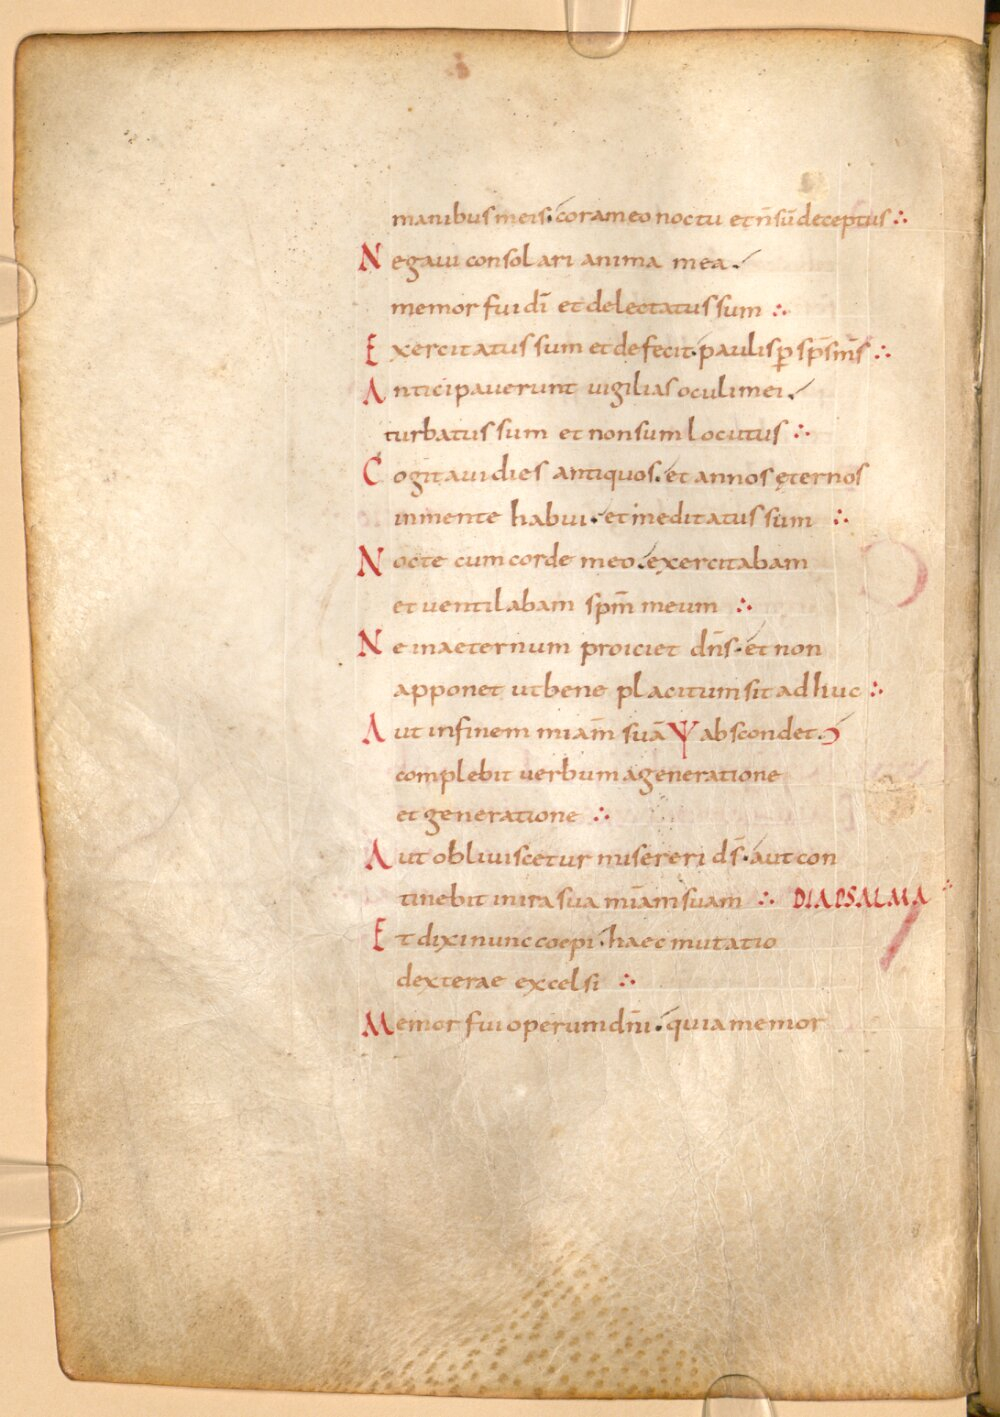 manibus meis. coram eo noctu et n̄ sū deceptus ∴
Negaui consolari anima mea.
memor fui dī et delectatus sum ∴
Exercitatus sum et defecit. paulisꝑ sp̄s m̄s ∴
Anticipauerunt uigilias oculi mei.
turbatus sum et non sum locutus ∴
Cogitaui dies antiquos. et annos ęternos
in mente habui. et meditatus sum ∴
Nocte cum corde meo. exercitabam
et uentilabam sp̄m meum ∴
Ne in aeternum proiciet dn̄s. et non
apponet ut bene placitum sit adhuc ∴
Aut in finem miam̄ suā Ψ abscondet.
complebit uerbum a generatione
et generatione ∴
Aut obliuiscetur misereri d̄s. aut con
tinebit in ira sua miām suam ∴ DIAPSALMA
Et dixi nunc coepi. haec mutatio
dexterae excelsi ∴
Memor fui operum dn̄i. quia memor